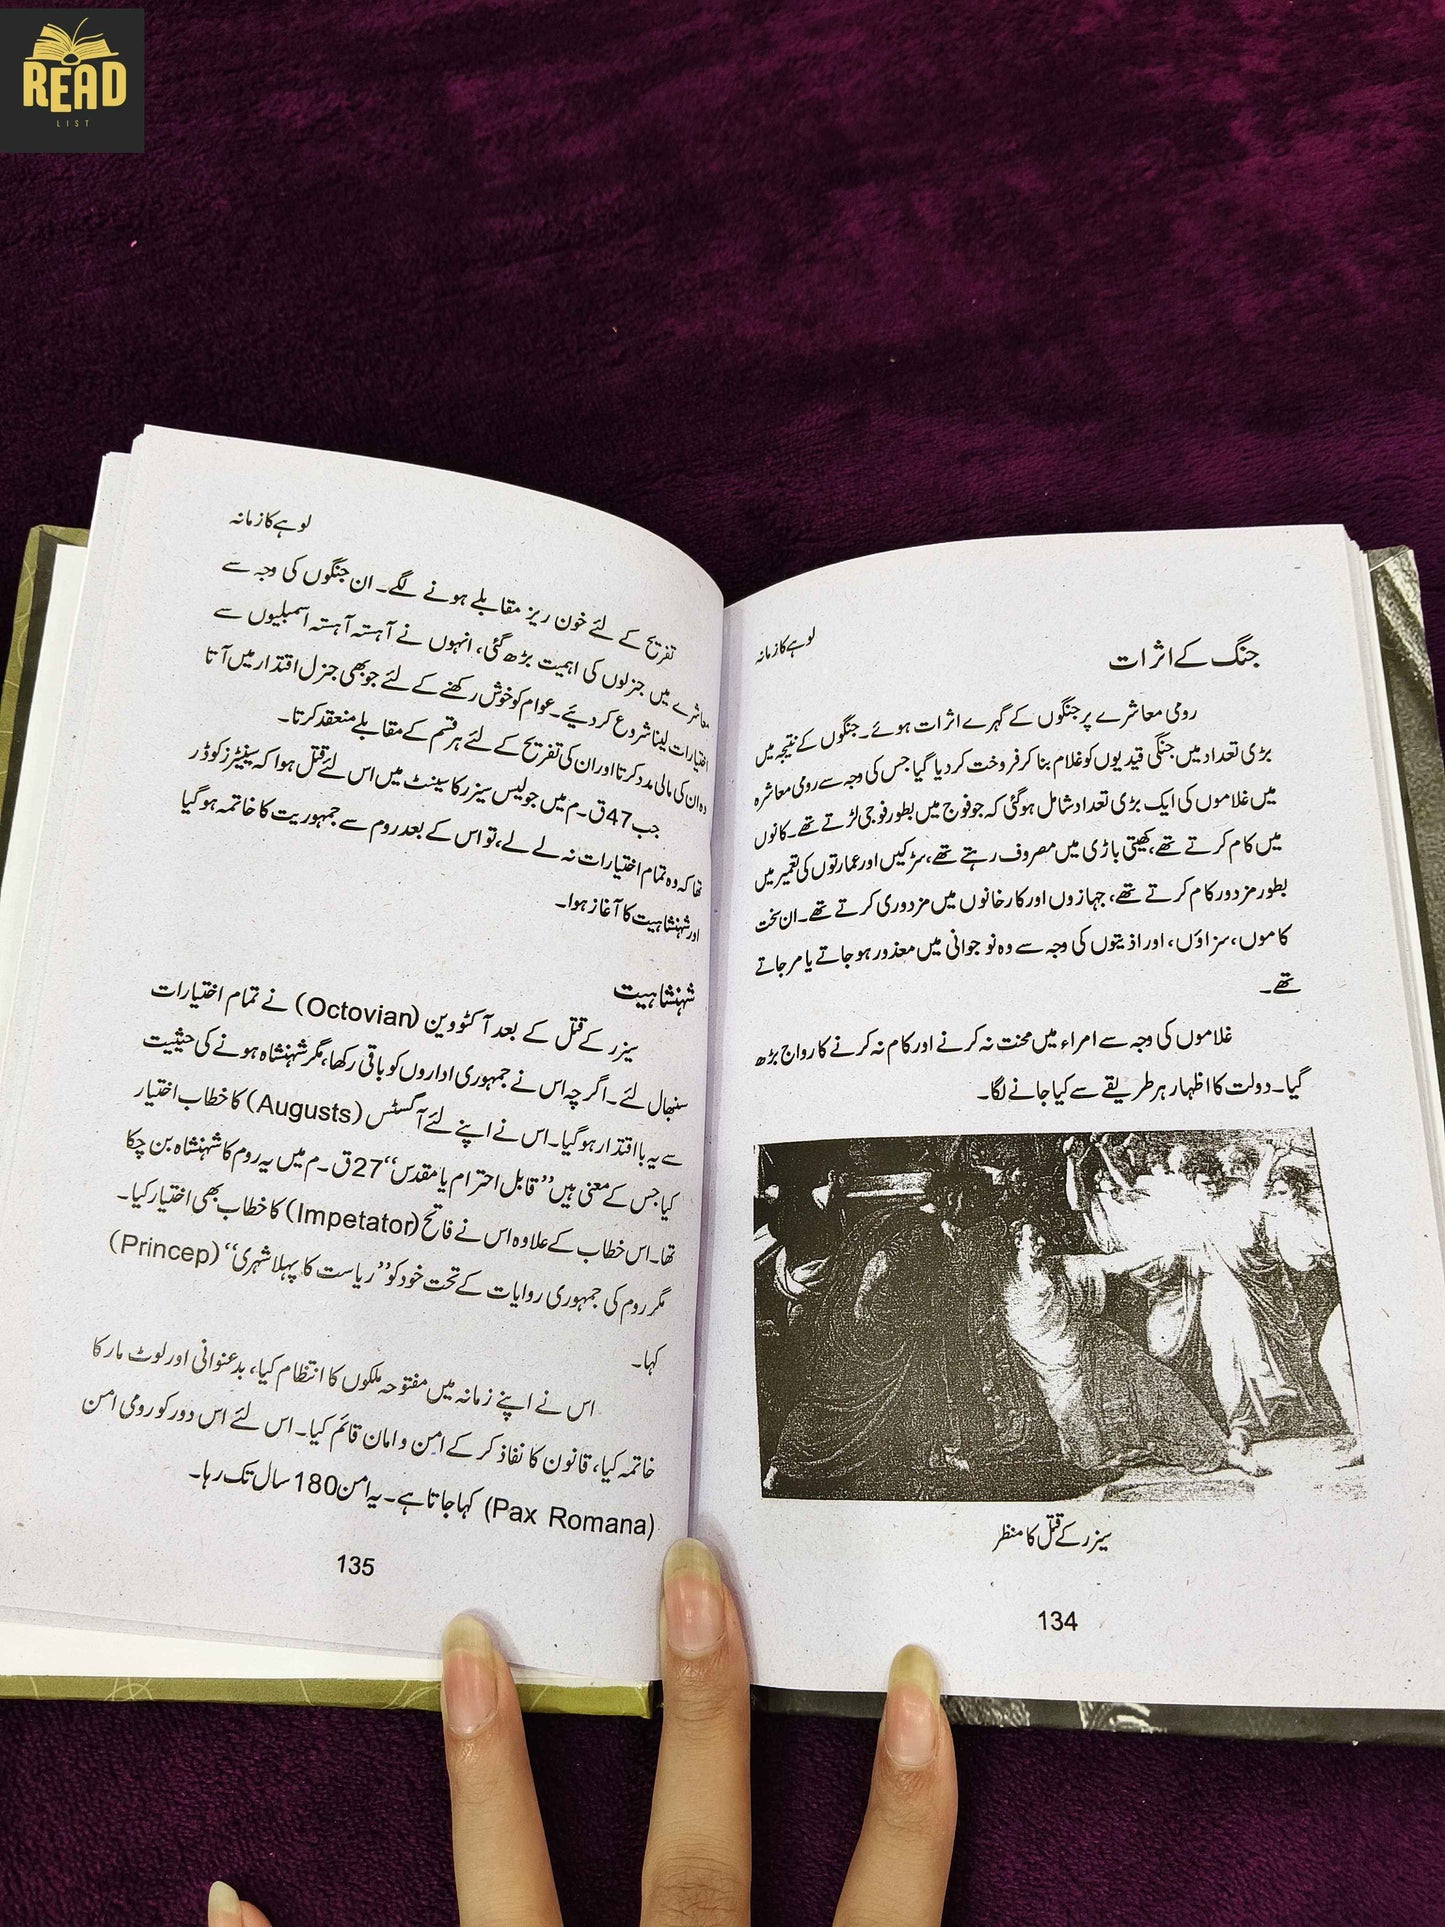 READ
LIST
لوہے کا زمانہ
جنگ کے اثرات
رومی معاشرے پر جنگوں کے گہرے اثرات ہوئے۔ جنگوں کے نتیجہ میں
بڑی تعداد میں جنگی قیدیوں کو غلام بنا کر فروخت کر دیا گیا جس کی وجہ سے رومی معاشرہ
میں غلاموں کی ایک بڑی تعداد شامل ہو گئی کہ جو فوج میں بطور فوجی لڑتے تھے۔ کانوں
میں کام کرتے تھے، کھیتی باڑی میں مصروف رہتے تھے، سڑکیں اور عمارتوں کی تعمیر میں
بطور مزدور کام کرتے تھے، جہازوں اور کارخانوں میں مزدوری کرتے تھے۔ ان سخت
کاموں، سزاؤں، اور اذیتوں کی وجہ سے وہ نوجوانی میں معذور ہو جاتے یا مر جاتے
تھے۔
غلاموں کی وجہ سے امراء میں محنت نہ کرنے اور کام نہ کرنے کا رواج بڑھ
گیا۔ دولت کا اظہار ہر طریقے سے کیا جانے لگا۔
سیزر کے قتل کا منظر
134
لوہے کا زمانہ
تفریح کے لئے خون ریز مقابلے ہونے لگے۔ ان جنگوں کی وجہ سے
معاشرے میں جنرلوں کی اہمیت بڑھ گئی، انہوں نے آہستہ آہستہ اسمبلیوں سے
اختیارات لینا شروع کر دیئے۔ عوام کو خوش رکھنے کے لئے جو بھی جنرل اقتدار میں آتا
وہ ان کی مالی مدد کرتا اور ان کی تفریح کے لئے ہر قسم کے مقابلے منعقد کرتا۔
جب 47 ق۔م میں جولیس سیزر کا سینٹ میں اس لئے قتل ہوا کہ سینیٹرز کو ڈر
تھا کہ وہ تمام اختیارات نہ لے لے، تو اس کے بعد روم سے جمہوریت کا خاتمہ ہو گیا
اور شہنشاہیت کا آغاز ہوا۔
شہنشاہیت
سیزر کے قتل کے بعد آکٹووین (Octovian) نے تمام اختیارات
سنبھال لئے۔ اگرچہ اس نے جمہوری اداروں کو باقی رکھا، مگر شہنشاہ ہونے کی حیثیت
سے یہ بااقتدار ہو گیا۔ اس نے اپنے لئے آگسٹس (Augusts) کا خطاب اختیار
کیا جس کے معنی ہیں ”قابل احترام یا مقدس“ 27 ق۔م میں یہ روم کا شہنشاہ بن چکا
تھا۔ اس خطاب کے علاوہ اس نے فاتح (Impetator) کا خطاب بھی اختیار کیا۔
مگر روم کی جمہوری روایات کے تحت خود کو ”ریاست کا پہلا شہری“ (Princep)
کہا۔
اس نے اپنے زمانہ میں مفتوحہ ملکوں کا انتظام کیا، بدعنوانی اور لوٹ مار کا
خاتمہ کیا، قانون کا نفاذ کر کے امن و امان قائم کیا۔ اس لئے اس دور کو رومی امن
(Pax Romana) کہا جاتا ہے۔ یہ امن 180 سال تک رہا۔
135